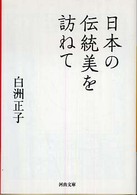 日本の
伝統美を
訪ねて
白洲正子
河出文庫